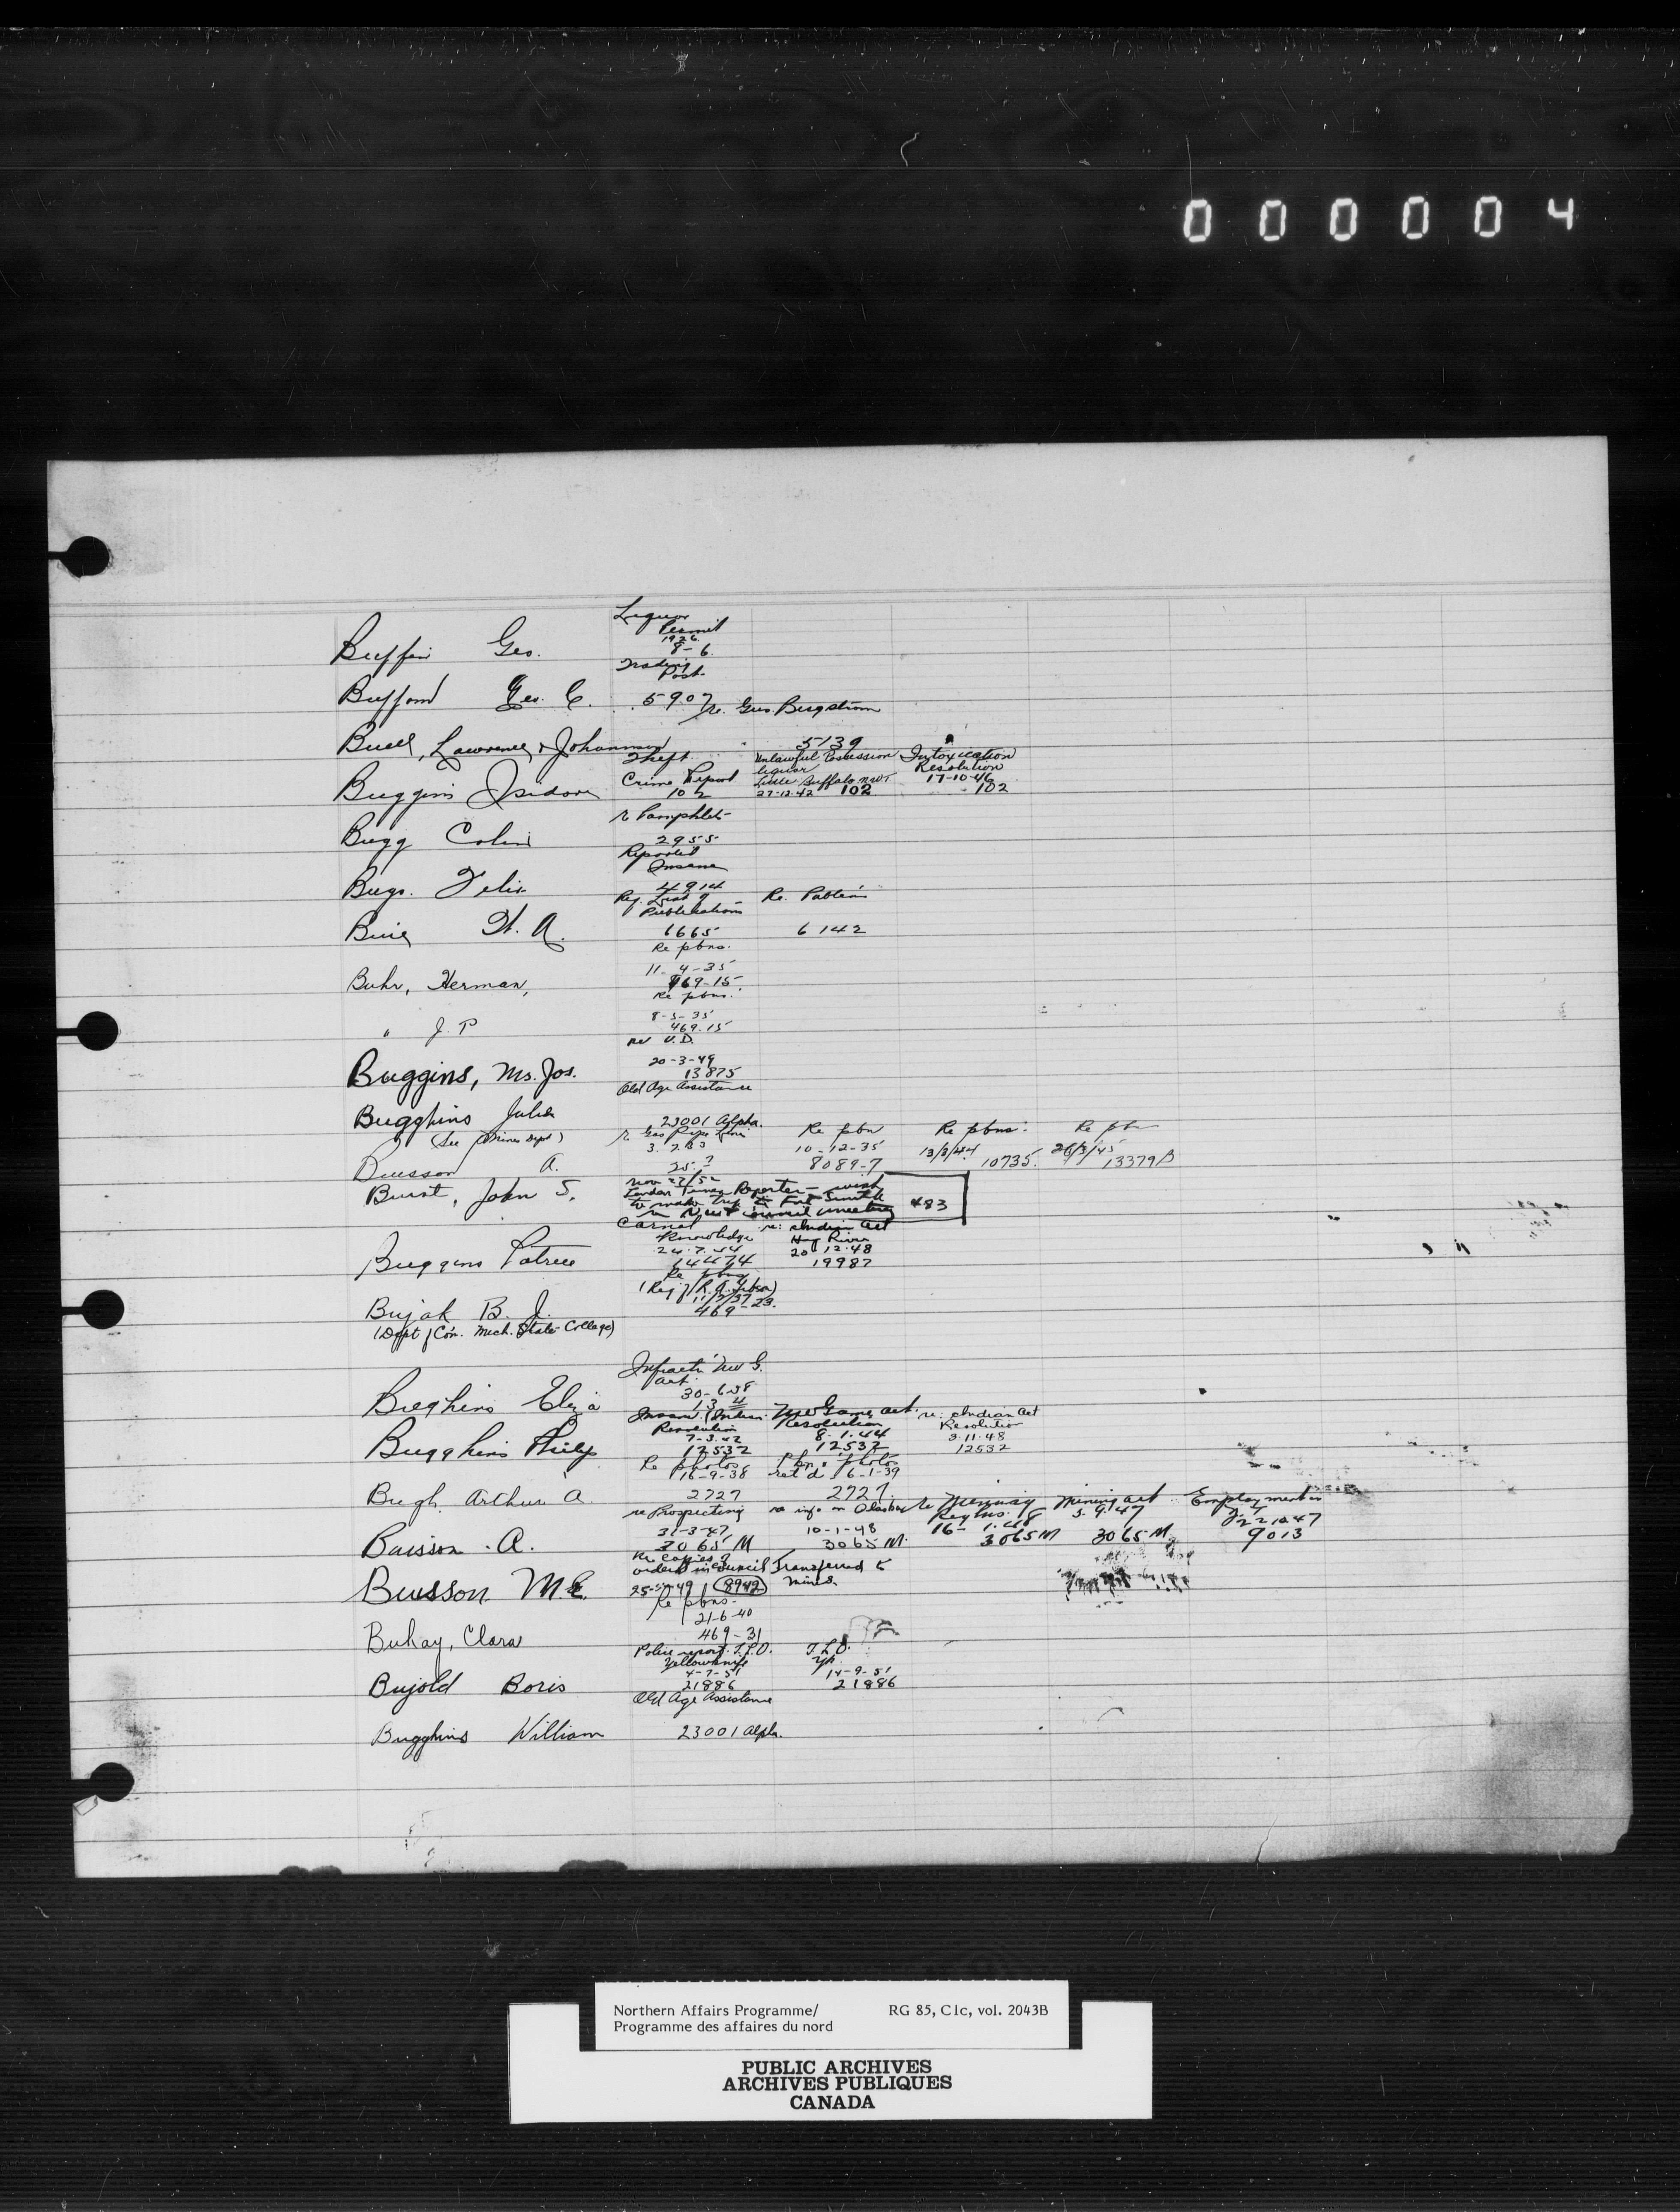 000004
Liquor
Permit
1926
Buffin Geo. 8-6
Trading
Post
Bufford Geo. C. 5907 re. Gus. Bergstrom
Buell, Lawrence & Johannes 5139
Theft Unlawful Possession Intoxication
liquor Resolution
Crime Report Little Buffalo NWT 17-10-46
Buggins Isidore 102 27-12-42 102 102
r Pamphlet
Bugg Colin 2955
Reported
Insane
Bugs. Felix 4914
Req. List of Re. Pablea'n
Publications
H. A. 6665 6142
Re pbns.
11-4-35
Buhr, Herman, 469-15
Re pbns.
8-5-35
" J. P 469-15
re V.D.
20-3-49
Buggins, Mrs. Jos. 13875
Old Age Assistance
Bugghins Julia 23001 Alpha.
(See Mines Dept) Re pbn Re pbns. Re pbn
10-12-35 13/3/44 26/3/45
A. 25-? 8089-7 10735. 13379B
Nov 27/52
Burst, John S. Reporter - wish
to make trip to Fort Smith
council meeting 483
Carnal re: Indian Act
Knowledge Hay River
24.7.44 20-12-48
Buggins 14474 19987
Re pbns
(Req of R. A. Gibson)
11/3/37
Bujak B. J. 469-23.
(Dept of Con. Mich. State College)
Infract. NW G.
act.
30-6-38
Bughins Eliza 134
Insane (Indian NW Game act. re: Indian Act
Resolution Resolution Resolution
7-3-42 8.1.44 3.11.48
Bugghins Philip 12532 12532 12532
Re photos Pbn. & photos
16-9-38 ret'd 6-1-39
Bugh. Arthur A 2727 2727.
re Prospecting re info on Alaska re Mining Mining act Employment in
Regtns. N.W.T
31-3-47 10-1-48 16-1-48 3.9.47 22.10.47
Buisson. A. 3065 M 3065 M. 3065 M 3065 M. 9013
Re copies of
orders in Council Transferred to
Buisson. M. E. 25- -49 8942 mines.
Re pbns.
21-6-40
Buhay, Clara 469-31
Police report. T.L.O. T.L.O.
Yellowknife Yk.
4-7-51 14-9-51
Bujold Boris 21886 21886
Old Age Assistance
Bugghins William 23001 Alpha.
Northern Affairs Programme/ RG 85, C1c, vol. 2043B
Programme des affaires du nord
PUBLIC ARCHIVES
ARCHIVES PUBLIQUES
CANADA